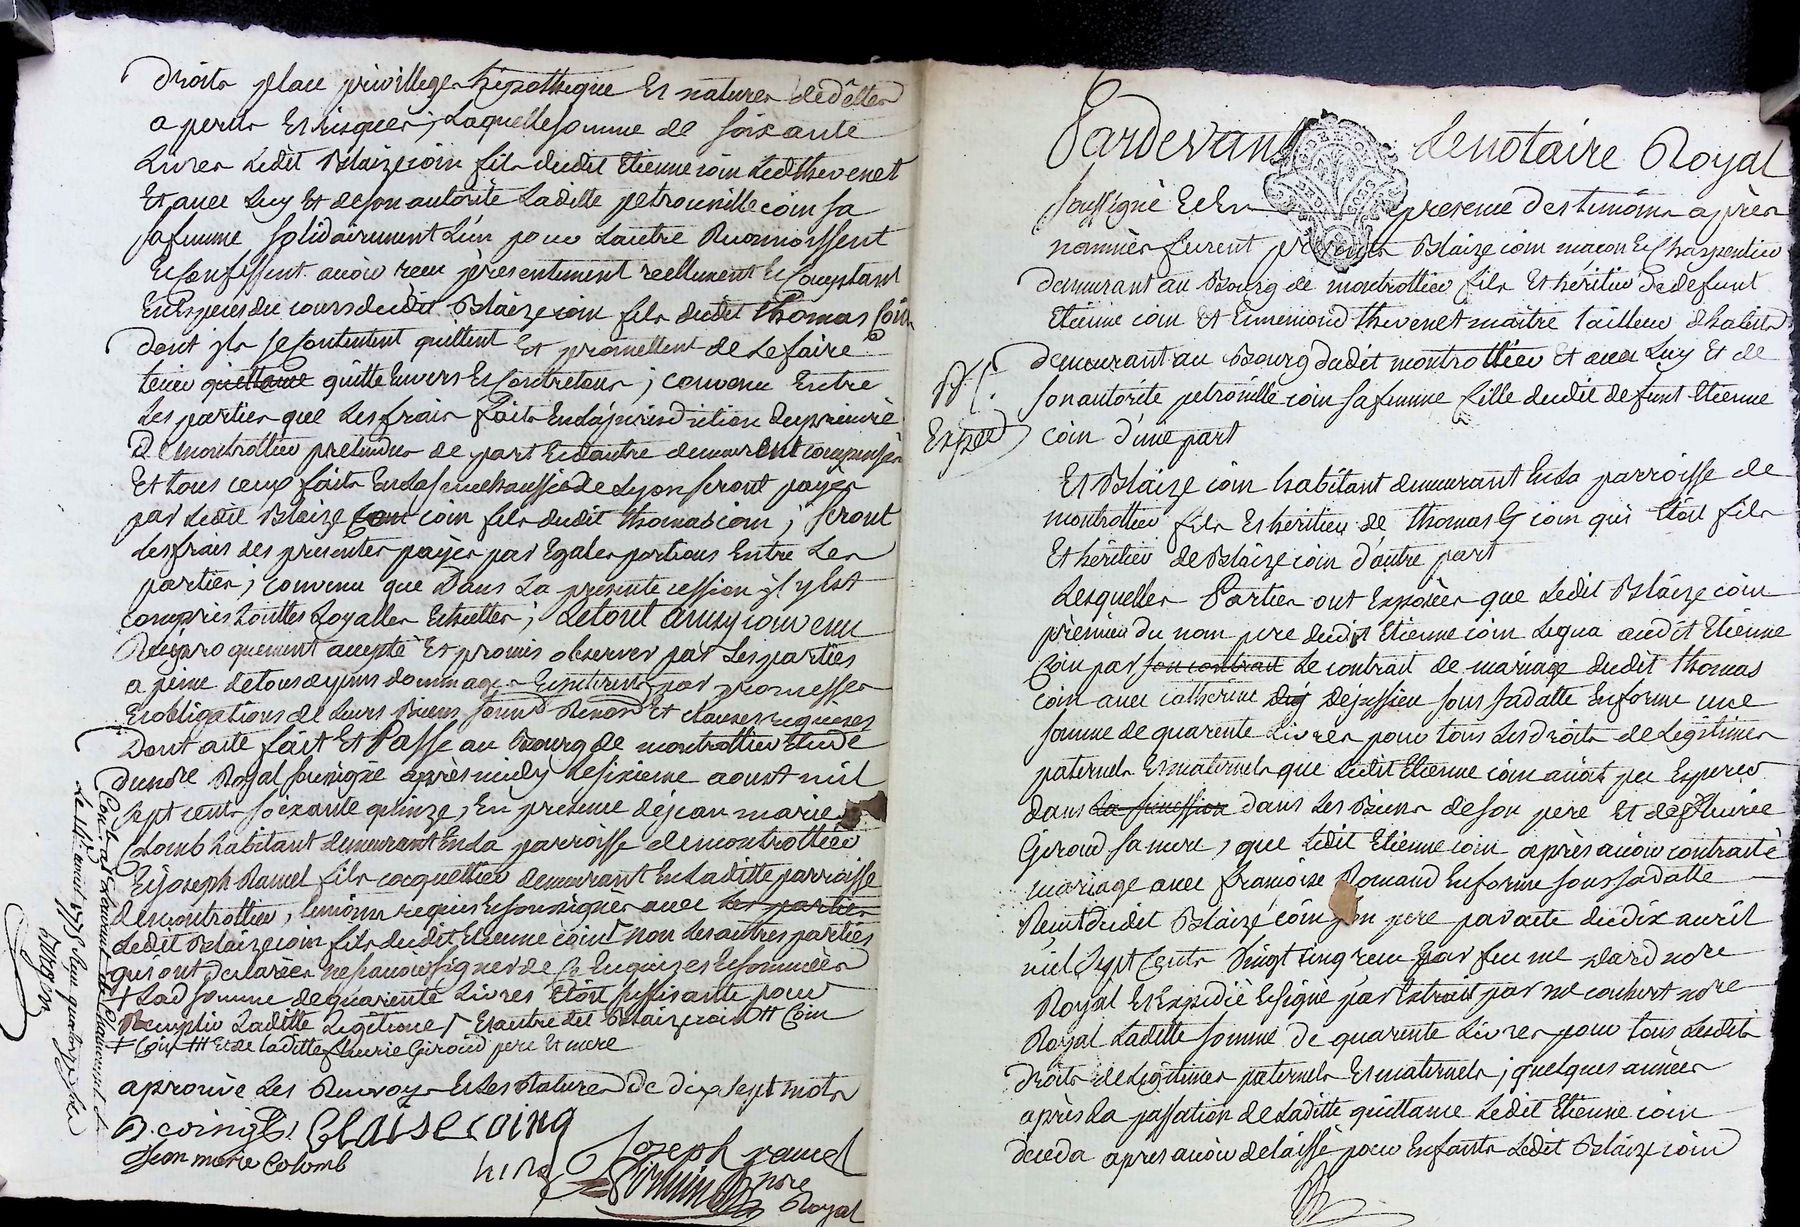 droits place privilleges hipotheque Et natures de dêttes
a perils Et risques, Laquelle somme de soixante
Livres Ledit Blaize coin fils dudit Etienne coin Ledt thevenet
Et avec Luy Et de son autorité Laditte petronille coin sa
sa femme solidairement L'un pour Lautre Reconnoissent
Et confessent avoir recu presentement reellement Et Comptant
En Especes du cours dudit Blaize coin fils dudit thomas Coin
dont ils se Contentent quittent Et promettent de Le faire
tenir quittance quitte Envers Et Contre tous ; convenu Entre
Les parties que Les frais faits En La jurisdiction du prieuré
De montrottier pretendus de part Et dautre demeurent compensés
Et tous ceux faits En La senechaussée de Lyon seront payés
par Ledit Blaize coin fils dudit thomas coin ; seront
Les frais des presentes payés par Egales portions Entre Les
parties ; convenu que Dans La presente cession il y Est
compris touttes Loyalles Echettes ; Le tout ainsy convenu
Reciproquement accepté Et promis observer par Les parties
a peine de tous depens dommages Et interests par promesses
Et obligations de Leurs Biens soumn Renonn Et clauses requises
Dont acte fait Et Passé au Bourg de montrottier Etude
du nore Royal soussigné après midy Le sixieme aoust mil
sept cents soixante quinze, En presence de jean marie
Colomb habitant demeurant En La parroisse de montrottier
Et joseph Ramel fils cocquettier demeurant En Laditte parroisse
de montrottier, temoins requis Et soussignés avec Les parties
Ledit Blaize coin fils dudit Etienne coin non Les autres parties
qui ont declarées ne savoir signer de ce Enquises Et sommées
+ Lad somme de quarente Livres Etoit suffisante pour
Remplir Laditte Legitime Et autre dit Blaize coin # Coin
+ Coin ### Et de laditte fleurie Giroud pere Et mere
aprouvé Les Renvoys Et Les Ratures de dix sept mots
B. coing fs. Blaise coing
Jean marie Colomb
Joseph ramel
nore
Royal
Controlé
Le 14 aoust 1775 Reçu quatorze sols
Pardevant Le notaire Royal
soussigné Et En presence des temoins après
nommés furent presents Blaize coin maçon Et Charpentier
demeurant au Bourg de montrottier fils Et héritier de defunt
Etienne coin Et Ennemond thevenet maitre tailleur dhabits
demeurant au Bourg dudit montrottier Et avec Luy Et de
son autorité petronille coin sa femme fille dudit defunt Etienne
coin d'une part
Exped
Et Blaize coin habitant demeurant En La parroisse de
montrottier fils Et heritier de thomas coin qui Etoit fils
Et héritier de Blaize coin d'autre part
Lesquelles Parties ont Exposées que Ledit Blaize coin
premier du nom pere dudit Etienne coin Legua audit Etienne
Coin par son contrait Le contrait de mariage dudit thomas
coin avec catherine dejussieu sous sa datte En forme une
somme de quarente Livres pour tous Les droits de Legitimes
paternels Et maternels que Ledit Etienne coin auroit pu Esperer
dans La succession dans Les Biens de son pere Et de fleurie
Giroud sa mere, que Ledit Etienne coin après avoir contracté
mariage avec francoise Romand En forme sous sa datte
Recut dudit Blaize coin son pere par acte du dix avril
mil sept Cents Vingt cinq recu par feu me nore
Royal Et Expedié Et signé par Extrait par me nore
Royal Laditte somme de quarente Livres pour tous Lesdits
droits de Legitimes paternels Et maternels ; quelques années
après La passation de Laditte quittance Ledit Etienne coin
deceda après avoir delaissé pour Enfants Ledit Blaize coin